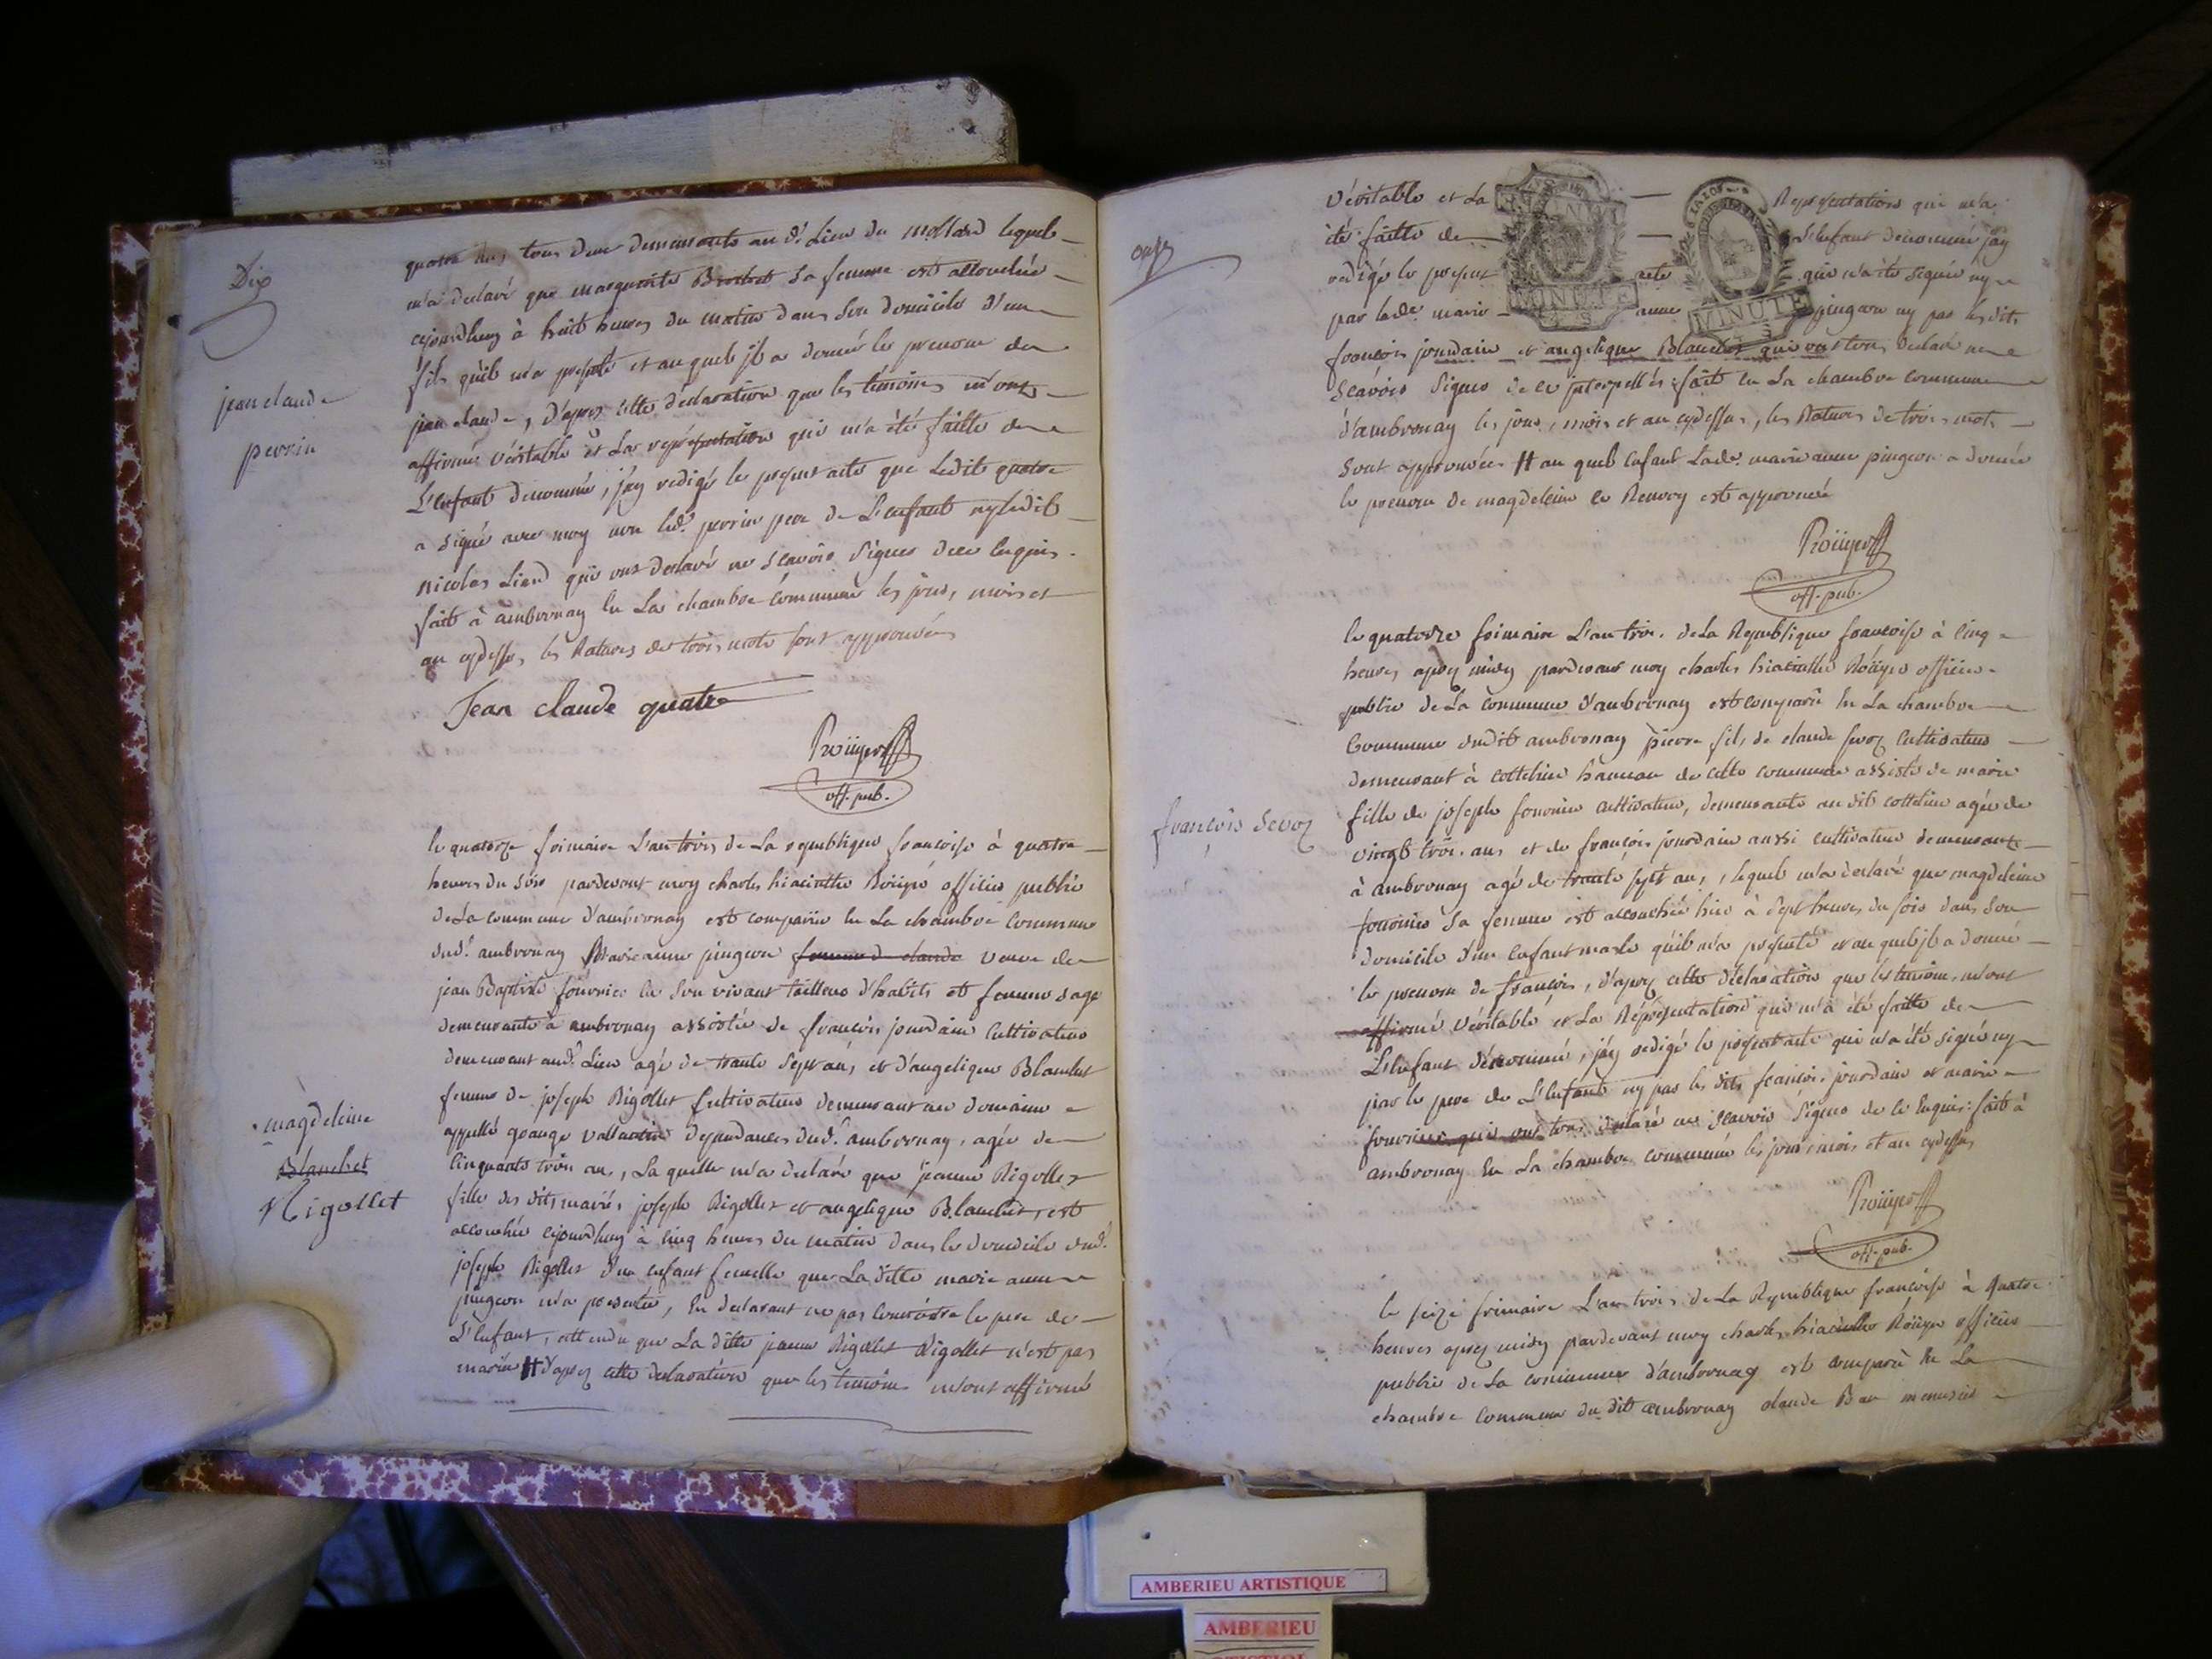 Dix
quatre ans, tous deux demeurants au dt. Lieu du mollard lequel
m'a declaré que marguerite Brochet sa femme est accouchée
cejourdhuy à huit heures du matin dans son domicile d'un
fils qu'il m'a presenté et auquel jl a donné les prenom de
jean claude, d'après cette declaration que les témoins m'ont
affirmé véritable et La représentation qui m'a été faitte de
L'enfant denommé, j'ay redigé le present acte que Ledit quatre
a signé avec moy non led. perrin pere de L'enfant ny ledit
nicolas Liard qui ont declaré ne scavoir signer de ce enquis.
fait à ambronay en La chambre commune les jour, mois et
an cydessus, les Ratures de trois mots sont approuvées
jean claude
perrin
Jean claude quatre
Roüyer
off. pub.
le quatorze frimaire L'an trois de La republique françoise à quatre
heures du soir pardevant moy charles hiacinthe Roüyer officier public
de La commune d'ambronay est comparue en La chambre commune
dud. ambronay Marieanne pingeon femme de claude veuve de
jean Baptiste fournier en son vivant tailleur d'habits et femme sage
demeurante à ambronay assistée de françois jourdain cultivateur
demeurant aud. Lieu agé de trante sept ans, et d'angelique Blanchet
femme de joseph Rigollet cultivateur demeurant au domaine
appellé grange dependances dud. ambronay, agée de
cinquante trois ans, La quelle m'a declaré que jeanne Rigollet
fille des dits mariés joseph Rigollet et angelique Blanchet, est
accouchée cejourdhuy à cinq heures du matin dans le domicile dud.
joseph Rigollet d'un enfant femelle que La ditte marie anne
pingeon m'a presentée, en declarant ne pas connoitre le pere de
L'enfant, attendu que La ditte jeanne Rigollet Rigollet n'est pas
mariée # d'après cette declaration que les temoins m'ont affirmé
magdeleine
Blanchet
Rigollet
onze
véritable et La Représentation qui m'a
été faitte de L'enfant denommé j'ay
redigé le present acte qui n'a été signée ny
par lade. marie anne pingeon ny par lesdits
françois jourdain et angelique Blanchet qui ont tous declaré ne
scavoir signer de ce jnterpellés: fait en La chambre commune
d'ambronay les jour, mois et an cydessus, les Ratures de trois mots
sont approuvées # au quel enfant Lade. marie anne pingeon a donné
le prenom de magdeleine le Renvoy est approuvé
MINUTE
MINUTE
Roüyer
off. pub.
le quatorze frimaire L'an trois de La Republique françoise à cinq
heures après midy pardevant moy charles hiacinthe Roüyer officier
public de La commune d'ambronay est comparu en La chambre
Commune dudit ambronay pierre fils de claude sevoz cultivateur
demeurant à cottelieu hameau de cette commune assisté de marie
fille de joseph fournier cultivateur, demeurante au dit cottelieu agée de
vingt trois ans et de françois jourdain aussi cultivateur demeurant
à ambronay agé de trante sept ans, lequel m'a declaré que magdeleine
fournier sa femme est accouchée hier à sept heures du soir dans son
domicile d'un enfant masle qu'il m'a presenté et au quel jl a donné
le prenom de françois, d'après cette déclaration que les temoins m'ont
affirmé véritable et La Représentation qui m'a été faitte de
L'enfant dénommé, j'ay redigé le present acte qui n'a été signé ny
par le pere de L'enfant ny par les dits françois jourdain et marie
fournier qui ont tous declaré ne scavoir signer de ce Enquis: fait à
ambronay en La chambre commune les jour, mois et an cydessus
françois Sevoz
Roüyer
off. pub.
le seize frimaire L'an trois de La Republique françoise à Quatre
heures après midy pardevant moy charles hiacinthe Roüyer officier
public de La commune d'ambronay est comparu en La
chambre commune du dit ambronay claude Bau menusier
AMBERIEU ARTISTIQUE
AMBERIEU